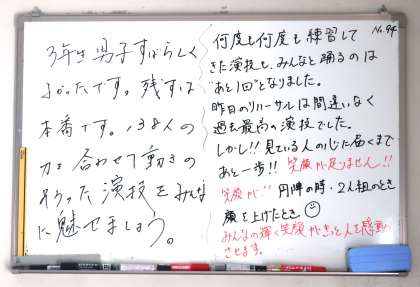 3年生男子すばらしく
よかったです。残すは
本番です。138人の
力を合わせて動きの
そろった演技をみんな
に魅せましょう。
No.94
何度も何度も練習して
きた演技も、みんなと踊るのは
"あと1回"となりました。
昨日のリハーサルは間違いなく
過去最高の演技でした。
しかし!!見ている人の心に届くまで
あと一歩!!笑顔が足りません!!
笑顔が!!円陣の時・2人組のとき
顔を上げたとき
みんなの輝く笑顔がきっと人を感動
させます。